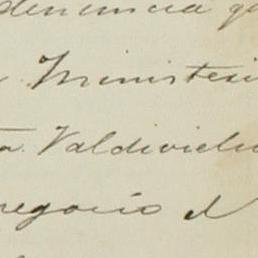 denuncia q
Ministeri
a Valdivielso
regorio d